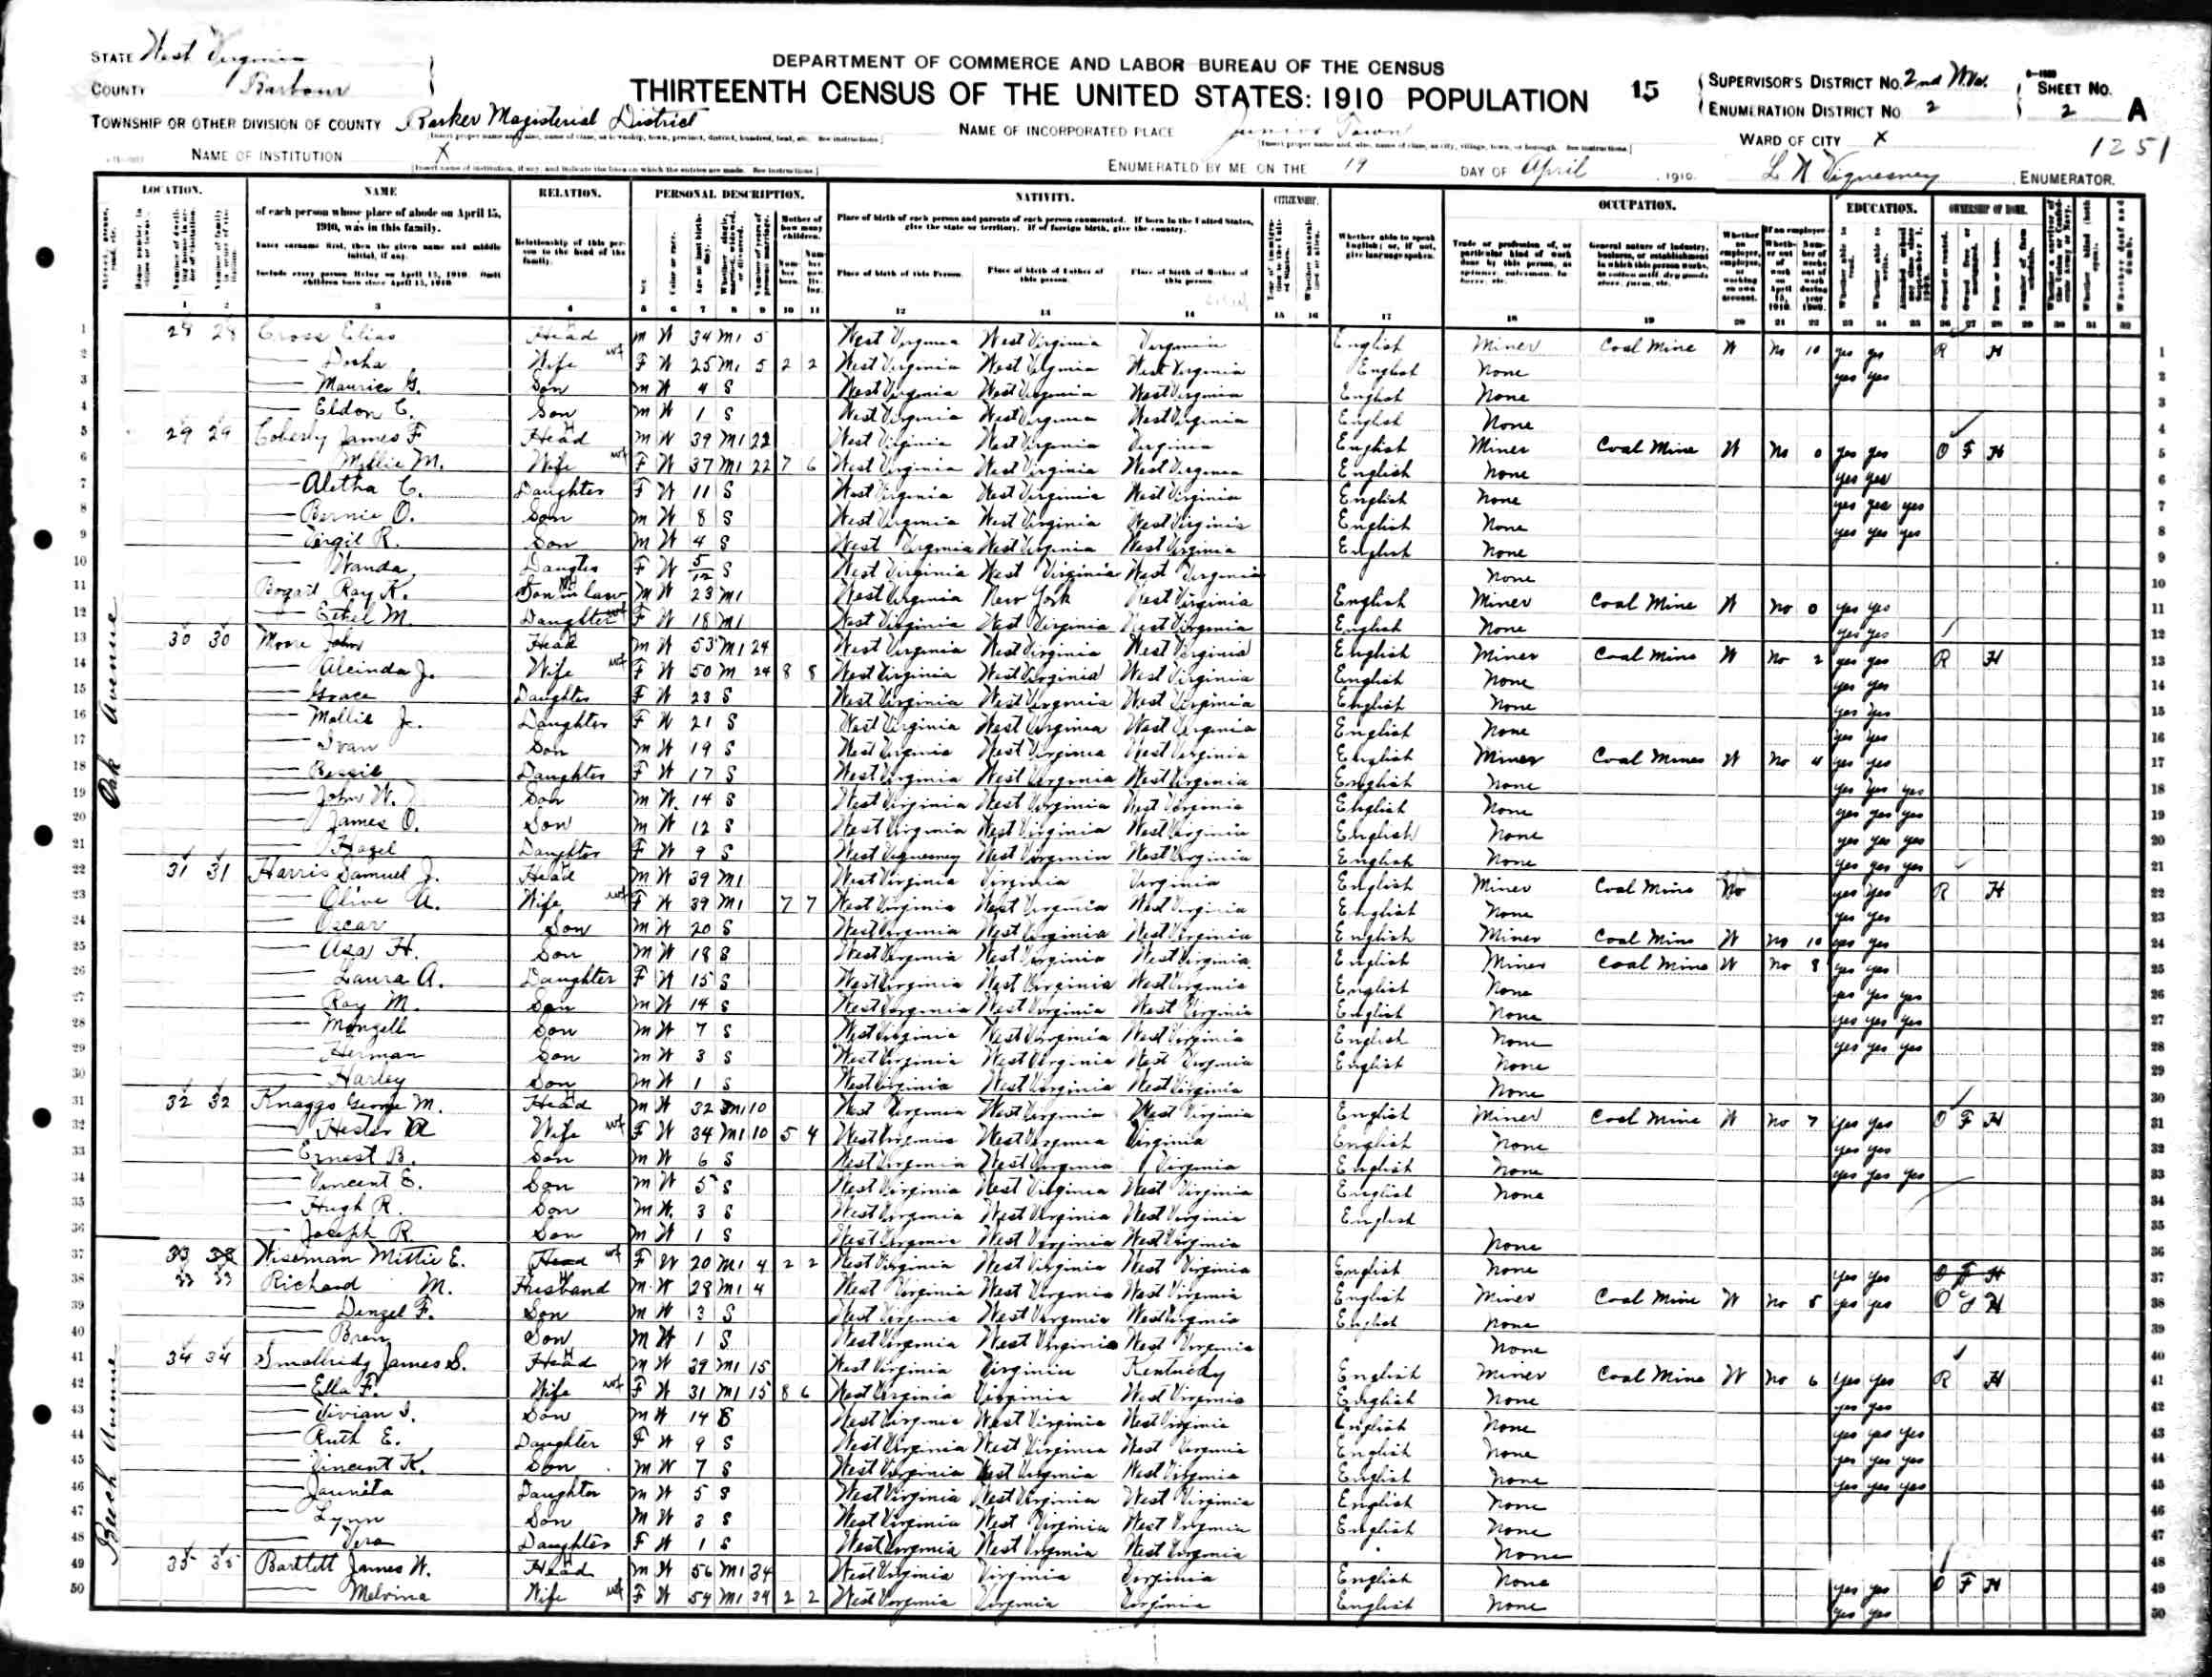 STATE West Virginia
COUNTY Barbour
TOWNSHIP OR OTHER DIVISION OF COUNTY Barker Magisterial District
NAME OF INSTITUTION X
DEPARTMENT OF COMMERCE AND LABOR BUREAU OF THE CENSUS
THIRTEENTH CENSUS OF THE UNITED STATES: 1910 POPULATION
15
NAME OF INCORPORATED PLACE Junior Town
ENUMERATED BY ME ON THE 19 DAY OF April, 1910.
SUPERVISOR'S DISTRICT NO. 2nd W.Va.
ENUMERATION DISTRICT NO 2
SHEET NO. 2 A
WARD OF CITY X
1251
L N Viquesney, ENUMERATOR.
LOCATION. NAME RELATION. PERSONAL DESCRIPTION. NATIVITY. CITIZENSHIP. OCCUPATION. EDUCATION. OWNERSHIP OF HOME.
of each person whose place of abode on April 15, 1910, was in this family.
Enter surname first, then the given name and middle initial, if any.
Include every person living on April 15, 1910. Omit children born since April 15, 1910
Relationship of this person to the head of the family.
Place of birth of each person and parents of each person enumerated. If born in the United States, give the state or territory. If of foreign birth, give the country.
Place of birth of this Person. Place of birth of Father of this person. Place of birth of Mother of this person.
Whether able to speak English; or, if not, give language spoken.
Oak Avenue
1 28 28 Cross Elias Head M W 34 M1 5 West Virginia West Virginia Virginia English Miner Coal Mine W No 10 yes yes R H 1
2 Wife F W 25 M1 5 2 2 West Virginia West Virginia West Virginia English None yes yes 2
3 Maurice G. Son M W 4 S West Virginia West Virginia West Virginia English None 3
4 Eldon C. Son M W 1 S West Virginia West Virginia West Virginia English None 4
5 29 29 Coberly James F Head M W 39 M1 22 West Virginia West Virginia Virginia English Miner Coal Mine W No 0 yes yes O F H 5
6 Millie M. Wife F W 37 M1 22 7 6 West Virginia West Virginia West Virginia English None yes yes 6
7 Aletha C. Daughter F W 11 S West Virginia West Virginia West Virginia English None yes yes yes 7
8 Bernie O. Son M W 8 S West Virginia West Virginia West Virginia English None yes yes yes 8
9 Virgil R. Son M W 4 S West Virginia West Virginia West Virginia English None 9
10 Wanda Daughter F W 5/12 S West Virginia West Virginia West Virginia None 10
11 Bogart Ray K. Son in law M W 23 M1 West Virginia New York West Virginia English Miner Coal Mine W No 0 yes yes 11
12 Ethel M. Daughter F W 18 M1 West Virginia West Virginia West Virginia English None yes yes 12
13 30 30 Moore John Head M W 53 M1 24 West Virginia West Virginia West Virginia English Miner Coal Mine W No 2 yes yes R H 13
14 Alcinda J. Wife F W 50 M 24 8 8 West Virginia West Virginia West Virginia English None yes yes 14
15 Grace Daughter F W 23 S West Virginia West Virginia West Virginia English None yes yes 15
16 Mollie J. Daughter F W 21 S West Virginia West Virginia West Virginia English None yes yes 16
17 Ivan Son M W 19 S West Virginia West Virginia West Virginia English Miner Coal Mines W No 4 yes yes 17
18 Bessie Daughter F W 17 S West Virginia West Virginia West Virginia English None yes yes yes 18
19 John W. Son M W 14 S West Virginia West Virginia West Virginia English None yes yes yes 19
20 James O. Son M W 12 S West Virginia West Virginia West Virginia English None yes yes yes 20
21 Hazel Daughter F W 9 S West Viquesney West Virginia West Virginia English None yes yes yes 21
22 31 31 Harris Samuel J. Head M W 39 M1 West Virginia Virginia Virginia English Miner Coal Mine No yes yes R H 22
23 Olive A. Wife F W 39 M1 7 7 West Virginia West Virginia West Virginia English None yes yes 23
24 Oscar Son M W 20 S West Virginia West Virginia West Virginia English Miner Coal Mine W No 10 yes yes 24
25 Asa H. Son M W 18 S West Virginia West Virginia West Virginia English Miner Coal Mine W No 8 yes yes 25
26 Laura A. Daughter F W 15 S West Virginia West Virginia West Virginia English None yes yes yes 26
27 Ray M. Son M W 14 S West Virginia West Virginia West Virginia English None yes yes yes 27
28 Monzell Son M W 7 S West Virginia West Virginia West Virginia English None yes yes yes 28
29 Herman Son M W 3 S West Virginia West Virginia West Virginia English None 29
30 Harley Son M W 1 S West Virginia West Virginia West Virginia None 30
31 32 32 Knaggs George M. Head M W 32 M1 10 West Virginia West Virginia West Virginia English Miner Coal Mine W No 7 yes yes O F H 31
32 Hester A Wife F W 34 M1 10 5 4 West Virginia West Virginia Virginia English None yes yes 32
33 Ernest B. Son M W 6 S West Virginia West Virginia Virginia English None yes yes yes 33
34 Vincent E. Son M W 5 S West Virginia West Virginia West Virginia English None 34
35 Hugh R. Son M W 3 S West Virginia West Virginia West Virginia English 35
36 Joseph R Son M W 1 S West Virginia West Virginia West Virginia None 36
Beech Avenue
37 33 Wiseman Mittie E. Head F W 20 M1 4 2 2 West Virginia West Virginia West Virginia English None yes yes O F H 37
38 33 33 Richard M. Husband M W 28 M1 4 West Virginia West Virginia West Virginia English Miner Coal Mine W No 5 yes yes O F H 38
39 Denzel F. Son M W 3 S West Virginia West Virginia West Virginia English None 39
40 Son M W 1 S West Virginia West Virginia West Virginia None 40
41 34 34 Smallridg James S. Head M W 39 M1 15 West Virginia Virginia Kentucky English Miner Coal Mine W No 6 yes yes R H 41
42 Ella F. Wife F W 31 M1 15 8 6 West Virginia Virginia West Virginia English None yes yes 42
43 Vivian I. Son M W 14 S West Virginia West Virginia West Virginia English None yes yes yes 43
44 Ruth E. Daughter F W 9 S West Virginia West Virginia West Virginia English None yes yes yes 44
45 Vincent K. Son M W 7 S West Virginia West Virginia West Virginia English None yes yes yes 45
46 Jaunita Daughter M W 5 S West Virginia West Virginia West Virginia English None 46
47 Lynn Son M W 3 S West Virginia West Virginia West Virginia English None 47
48 Vera Daughter F W 1 S West Virginia West Virginia West Virginia None 48
49 35 35 Bartlett James W. Head M W 56 M1 34 West Virginia Virginia Virginia English None yes yes O F H 49
50 Melvina Wife F W 54 M1 34 2 2 West Virginia Virginia Virginia English None yes yes 50